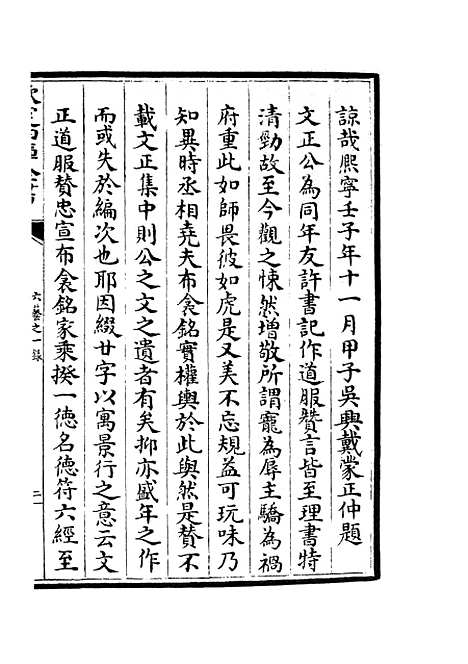 諒哉熙寧壬子年十一月甲子吳興戴蒙正仲題
文正公為同年友許書記作道服贊言皆至理書特
清勁故至今觀之悚然增敬所謂寵為辱主驕為禍
府重此如師畏彼如虎是又美不忘規益可玩味乃
知異時丞相堯夫布衾銘實權輿於此與然是贊不
載文正集中則公之文之遺者有矣抑亦盛年之作
而或失於編次也耶因綴廿字以寓景行之意云文
正道服贊忠宣布衾銘家乘揆一徳名德符六經至
六藝之一錄